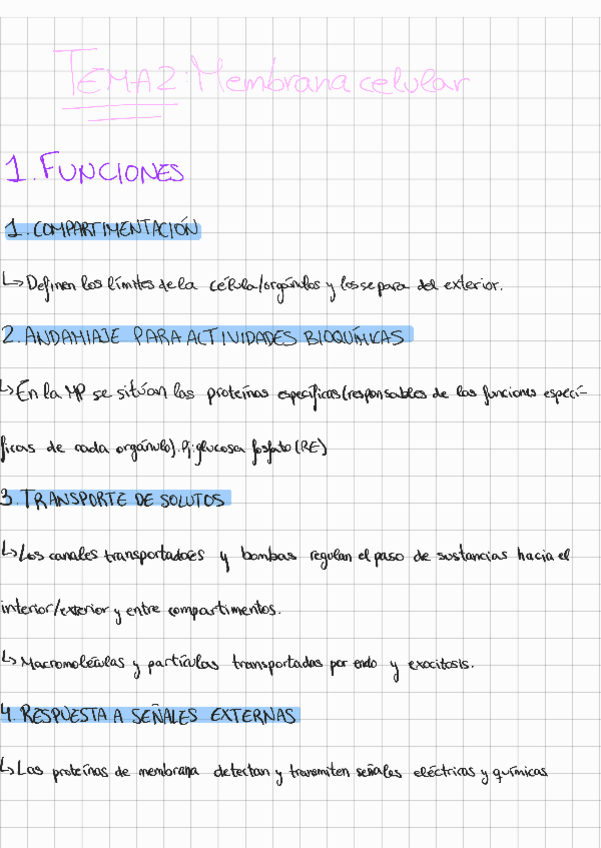 TEMA 2: Membrana celular
1. FUNCIONES
1. COMPARTIMENTACIÓN
↳ Definen los límites de la célula/orgánulos y los separa del exterior.
2. ANDAMIAJE PARA ACTIVIDADES BIOQUÍMICAS
↳ En la MP se sitúan las proteínas específicas (responsables de las funciones especí-
ficas de cada orgánulo). Pj: glucosa fosfato (RE)
3. TRANSPORTE DE SOLUTOS
↳ Los canales transportadores y bombas regulan el paso de sustancias hacia el
interior/exterior y entre compartimentos.
↳ Macromoléculas y partículas transportadas por endo y exocitosis.
4. RESPUESTA A SEÑALES EXTERNAS
↳ Las proteínas de membrana detectan y transmiten señales eléctricas y químicas